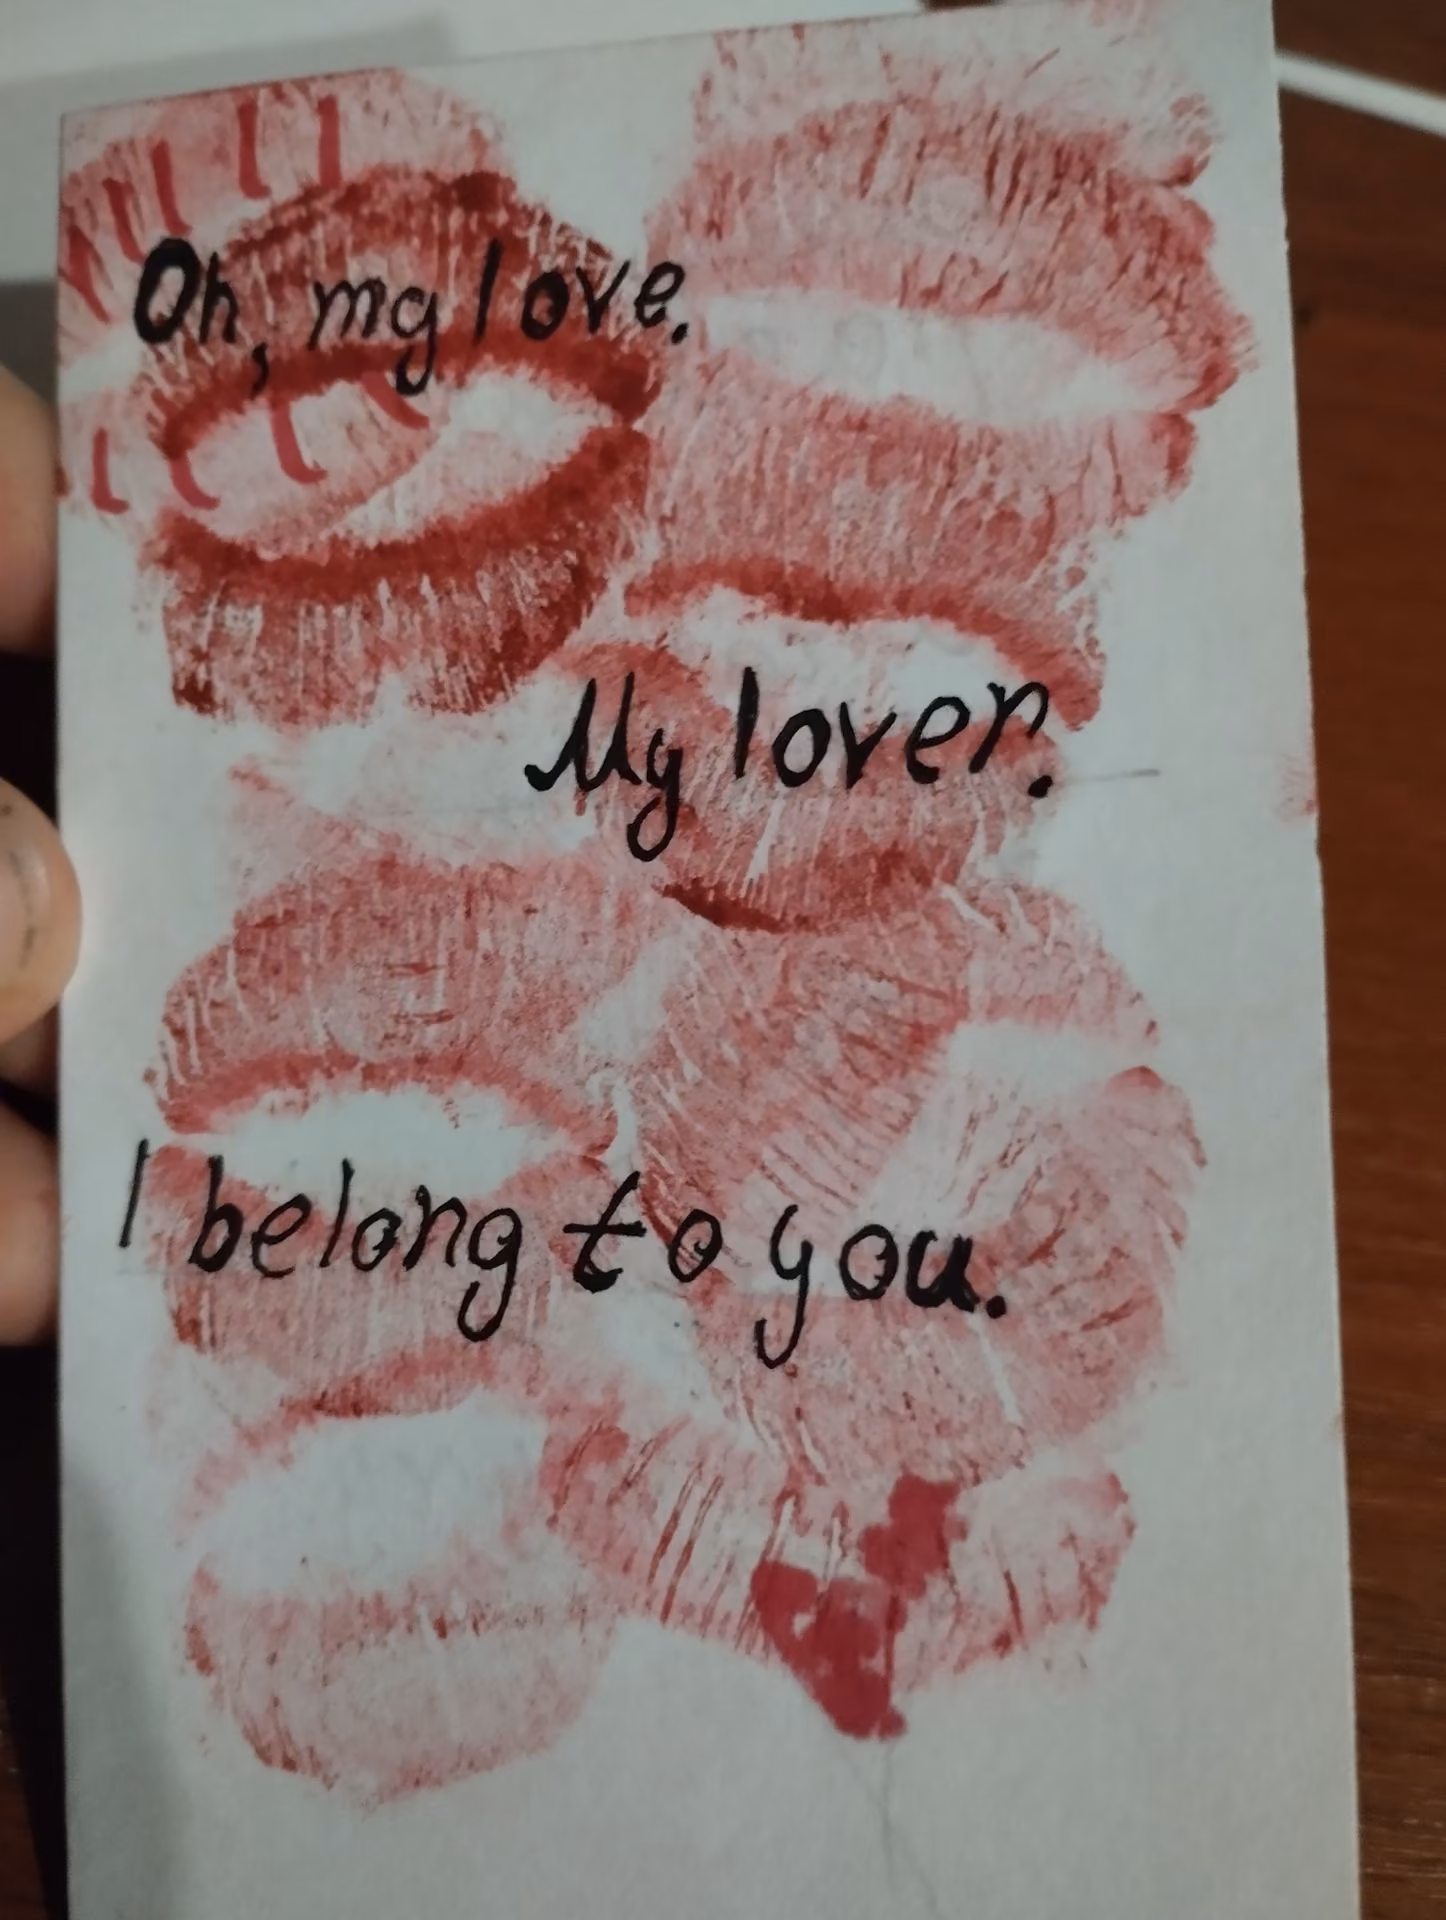 Oh, my love.
My lover.
I belong to you.